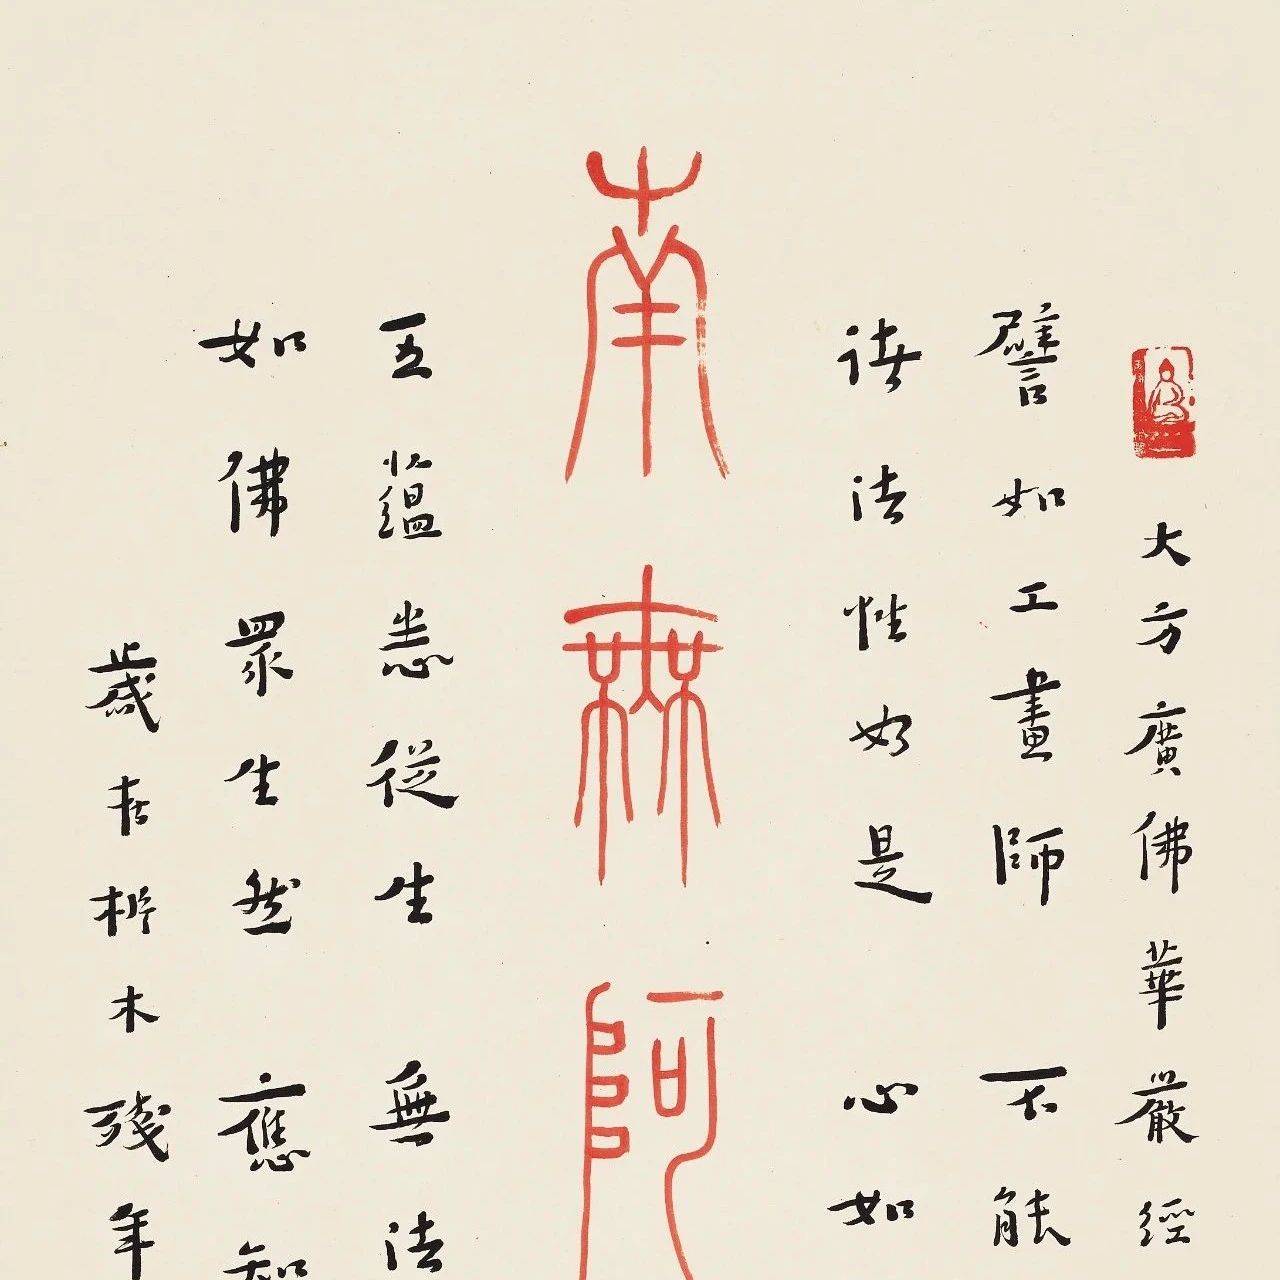 大方廣佛華嚴經
譬如工畫師 不能
諸法性如是 心如
南無阿
五蘊悉從生 無法
如佛眾生然 應知
歲在析木殘年